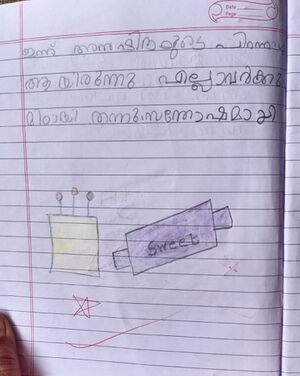 Date
Page
ഇന്ന് അനുഷിദയുടെ പിറന്നാൾ
ആയിരുന്നു എല്ലാവർക്കും
മിഠായി തന്നു സന്തോഷമായി
Sweet